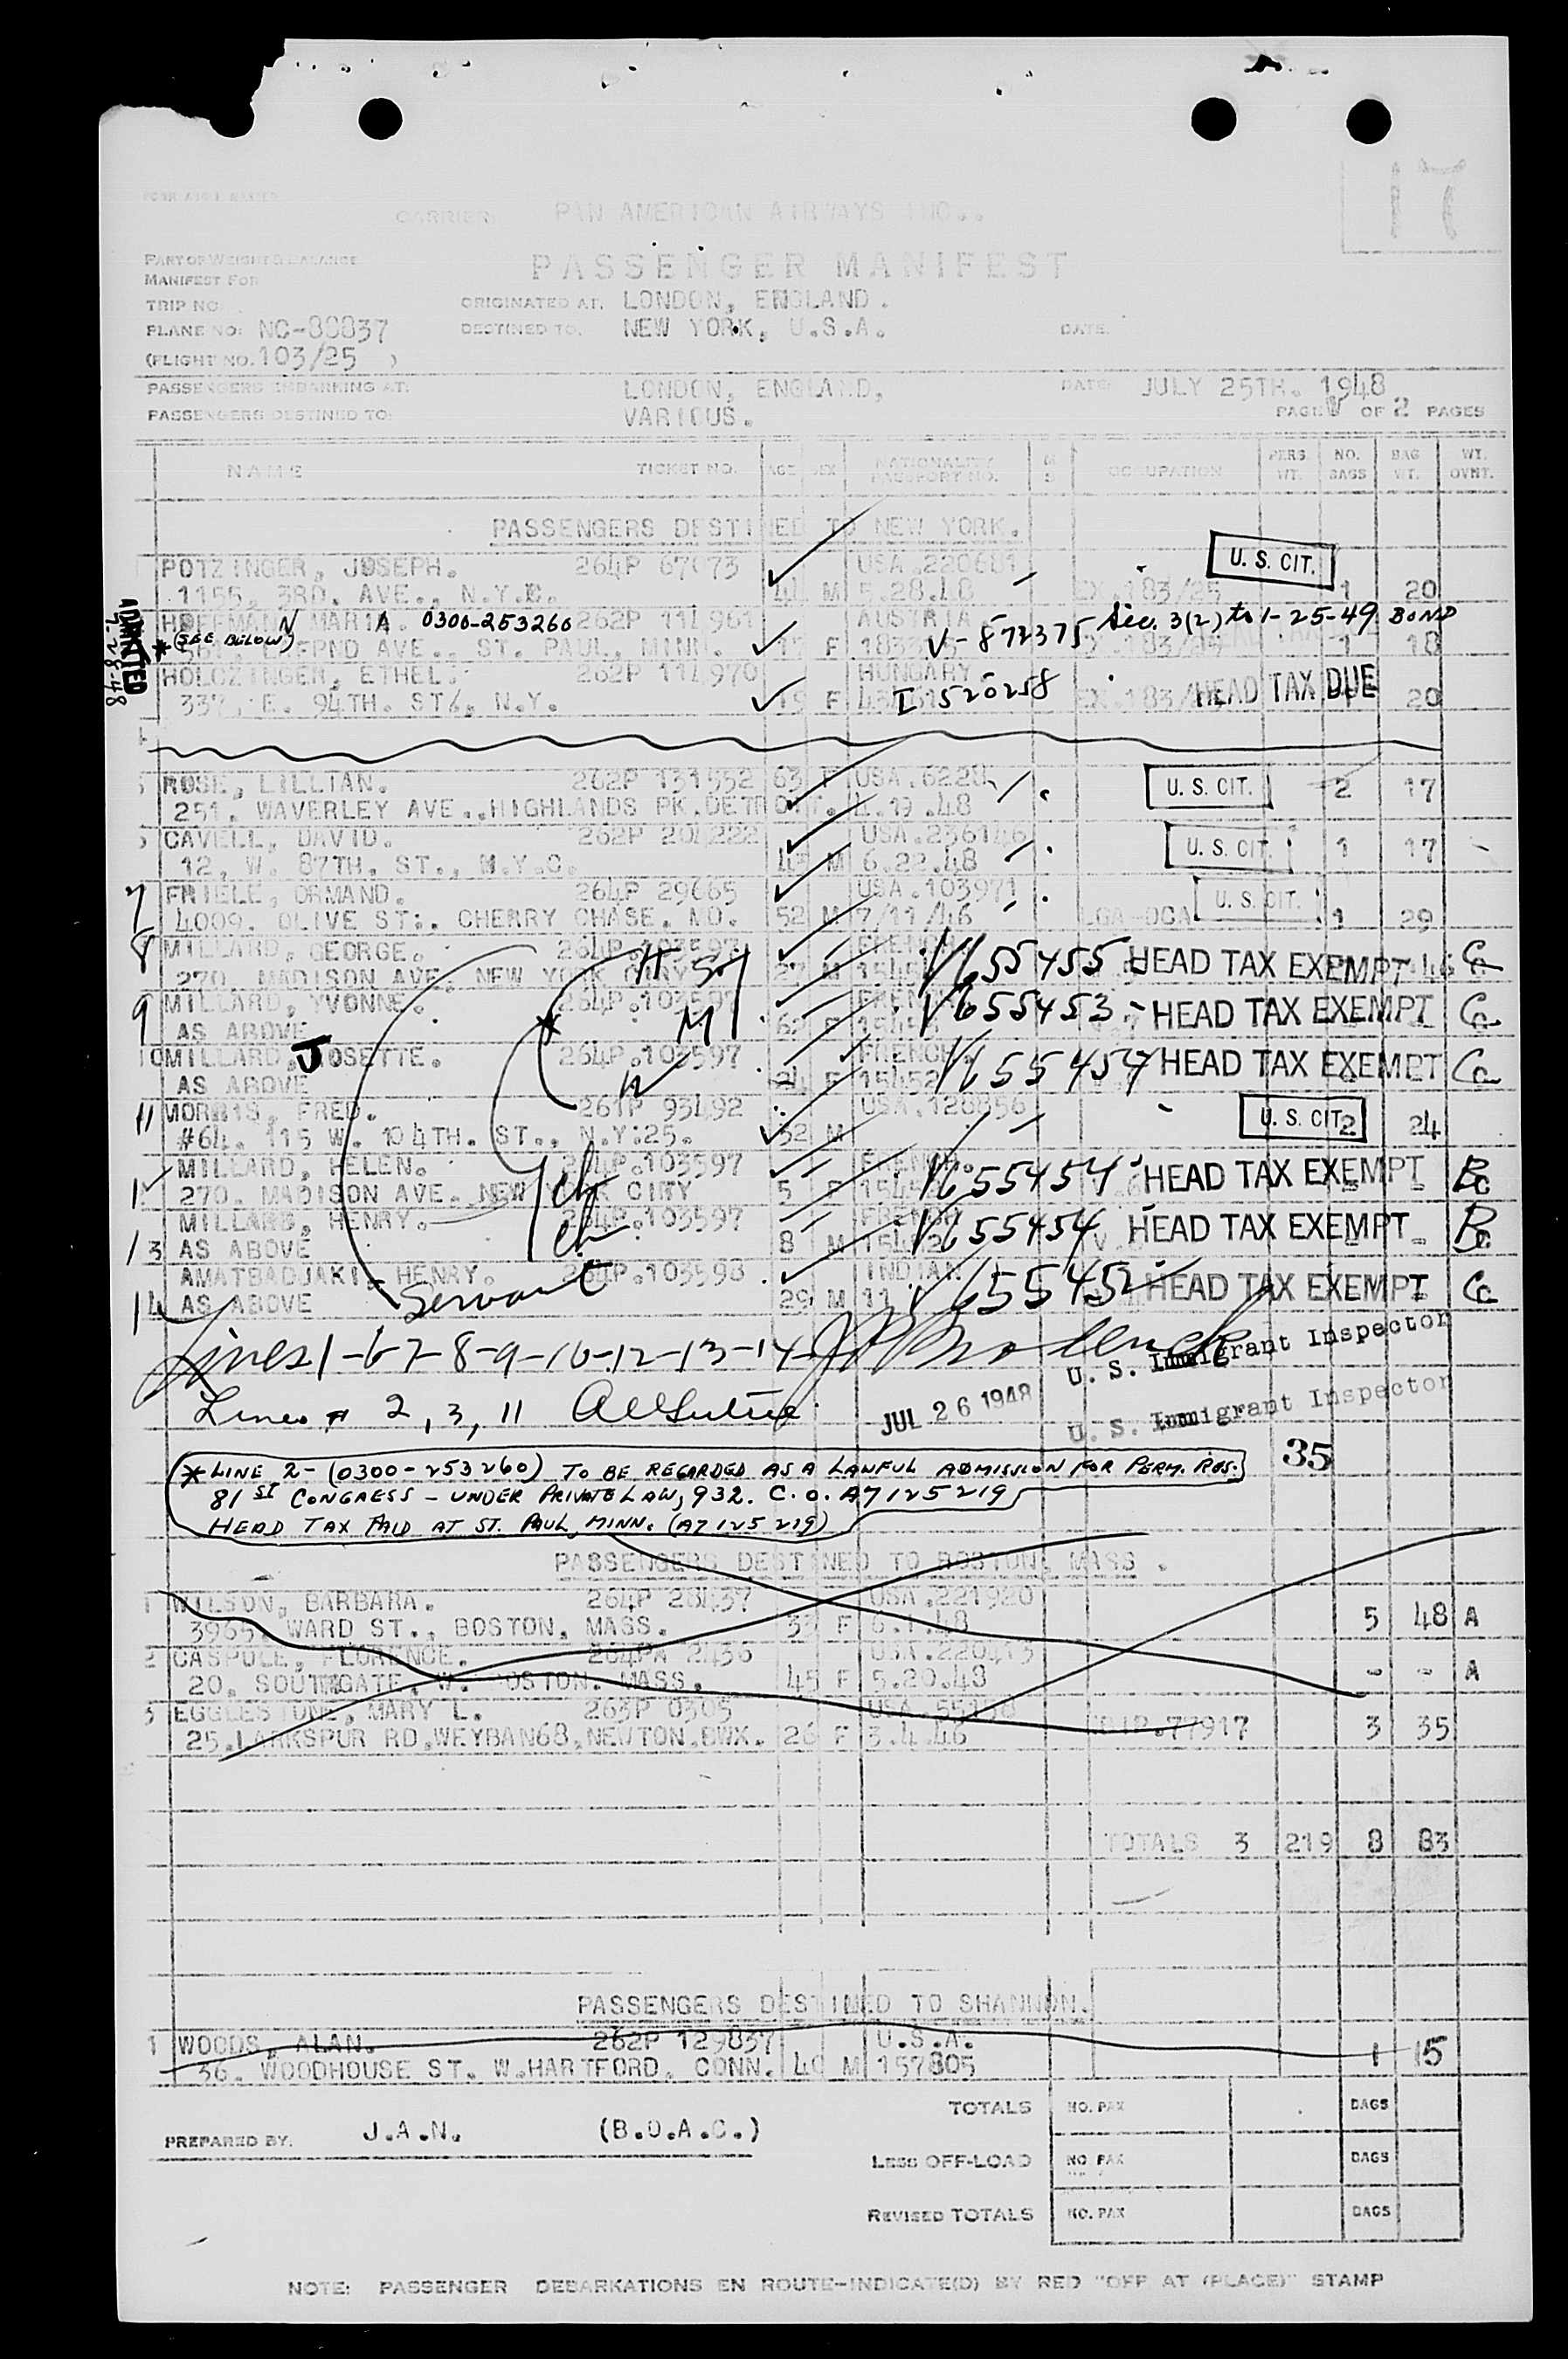 17
CARRIER: PAN AMERICAN AIRWAYS INC..
PART OF WEIGHT & BALANCE
MANIFEST FOR
PASSENGER MANIFEST
TRIP NO. ORIGINATED AT: LONDON, ENGLAND.
PLANE NO: NC-88837 DESTINED TO: NEW YORK, U.S.A. DATE:
(FLIGHT NO. 103/25 )
PASSENGERS EMBARKING AT: LONDON, ENGLAND, DATE: JULY 25TH. 1948
PASSENGERS DESTINED TO: VARIOUS. PAGE OF 2 PAGES
NAME TICKET NO. AGE SEX NATIONALITY PASSPORT NO. OCCUPATION PERS WT. NO. BAGS BAG WT. WT. OVNT.
PASSENGERS DESTINED TO NEW YORK.
POTZINGER, JOSEPH. 264P 67073 USA.220681 U. S. CIT.
1155, 3RD. AVE., N.Y.C. M 5.28.48 EX.183/25 1 20
HOFFMAN, MARIA. N A 0300-253260 262P 114961 AUSTRIA Sec. 3(2) to 1-25-49 BOND
* (SEE BELOW) AVE.. ST. PAUL, MINN. 17 F V-872375 183/25 1 18
ADMITTED 7-28-48
HOLCZINGER, ETHEL. 262P 114970 HUNGARY.
337, E. 94TH. ST., N.Y. 19 F I 520258 EX.183/ HEAD TAX DUE 20
ROSE, LILLIAN. 262P 131552 63 F USA.6228 U. S. CIT. 2 17
251. WAVERLEY AVE.,HIGHLANDS PK.DETROIT. 4.19.48
CAVELL, DAVID. 262P 201222 USA.236146 U. S. CIT. 1 17
12, W. 87TH. ST., N.Y.C. M 6.22.48
7 FRIELE, ORMAND. 264P 29665 USA.103971 U. S. CIT.
4009. OLIVE ST., CHERRY CHASE. MD. 52 M 7/11/46 LGA-DCA 1 29
8 MILLARD, GEORGE. 264P.103597 FRENCH V655455 HEAD TAX EXEMPT
270. MADISON AVE. NEW YORK CITY 27 M
9 MILLARD, YVONNE. 264P.103597 M FRENCH V655453 HEAD TAX EXEMPT
AS ABOVE 62 F
10 MILLARD, JOSETTE. 264P.103597 FRENCH. V655454 HEAD TAX EXEMPT
AS ABOVE 24 F 15452
11 MORRIS, FRED. 261P 93492 USA.128856 U. S. CIT. 2 24
#64. 115 W. 104TH. ST., N.Y.25. 32 M
MILLARD, HELEN. 264P.103597 FRENCH V655454 HEAD TAX EXEMPT
270. MADISON AVE. NEW YORK CITY ch 5 F
MILLARD, HENRY. 264P.103597 FRENCH V655454 HEAD TAX EXEMPT
13 AS ABOVE ch 8 M
AMATBADJAKI, HENRY. 264P.103598 INDIAN V655452 HEAD TAX EXEMPT
14 AS ABOVE Servant 29 M
Lines 1-6-7-8-9-10-12-13-14 U. S. Immigrant Inspector
Lines # 2, 3, 11 JUL 26 1948 U. S. Immigrant Inspector
35
* LINE 2- (0300-253260) TO BE REGARDED AS A LAWFUL ADMISSION FOR PERM. RES.
81ST CONGRESS - UNDER PRIVATE LAW, 932. C.O. A7125219
HEAD TAX PAID AT ST. PAUL, MINN. (A7 125 219)
PASSENGERS DESTINED TO BOSTON, MASS.
1 WILSON, BARBARA. 264P 28437 USA.221920
3965. WARD ST., BOSTON, MASS. 33 F 6.1.48 5 48 A
2 CASPOLE, FLORENCE. 264PA 2436 USA.220413
20, SOUTHGATE, W. BOSTON. MASS. 45 F 5.20.48 - - A
3 EGGLESTONE, MARY L. 263P 0305 USA
25.LARKSPUR RD.WEYBAN68,NEWTON.BWX. 26 F 3.4.46 77917 3 35
TOTALS 3 219 8 83
PASSENGERS DESTINED TO SHANNON.
1 WOODS, ALAN. 262P 129837 U.S.A.
36. WOODHOUSE ST. W.HARTFORD. CONN. 40 M 157805 1 15
TOTALS NO. PAX BAGS
PREPARED BY: J.A.N. (B.O.A.C.)
LESS OFF-LOAD NO PAX BAGS
REVISED TOTALS NO. PAX BAGS
NOTE: PASSENGER DEBARKATIONS EN ROUTE-INDICATE(D) BY RED "OFF AT (PLACE)" STAMP